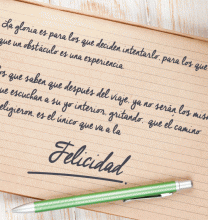 La gloria es para los que deciden intentarlo, para los
que un obstáculo es una experiencia.
los que saben que después del viaje, ya no serán los mismos
que escuchan a su yo interior, gritando, que el camino
eligieron, es el único que va a la
Felicidad